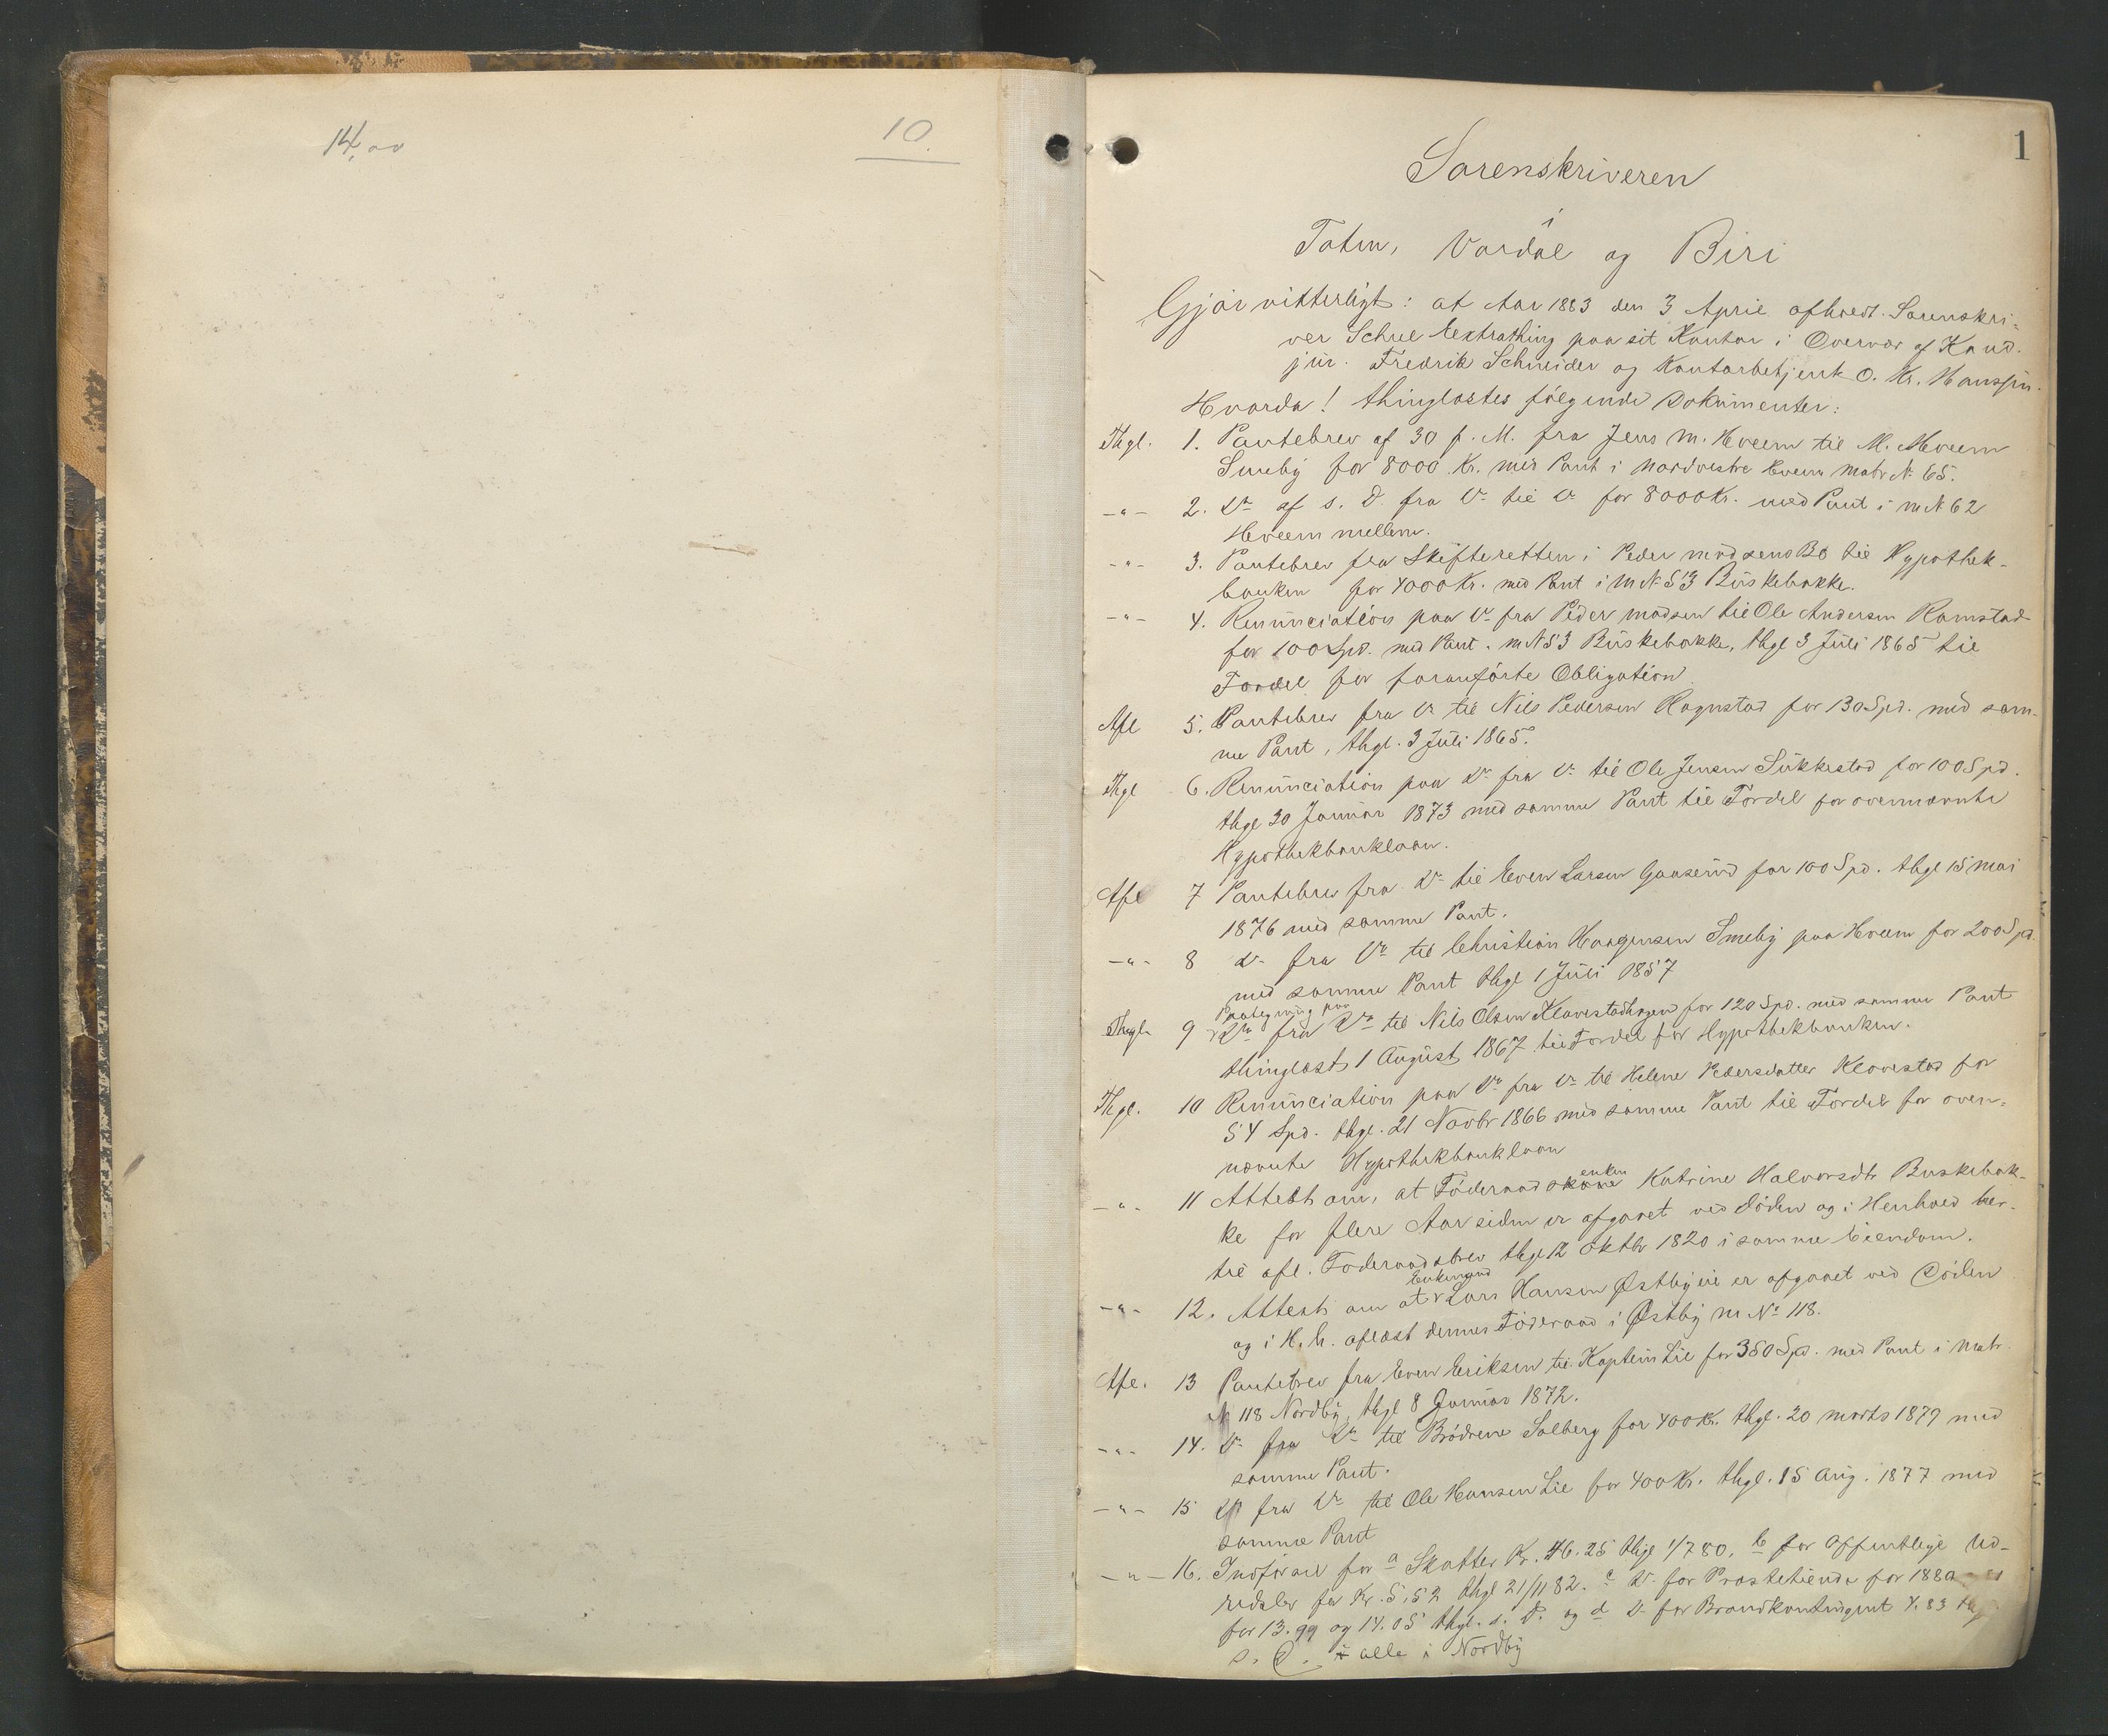 14,00
10.
1
Sorenskriveren
i
Toten, Vardal og Biri
Gjör vitterligt: at Aar 1883 den 3 April afholdt Sorenskri-
ver Schee Extrathing paa sit Kontor i Overvær af Kand.
jur. Fredrik Schneider og Kontorbetjent O. Kr. Hanssen.
Hvorda! thinglæstes fölgende Dokumenter:
Thgl. 1. Pantebrev af 30 f. M. fra Jens M. Hveem til M. Hveem
Smeby for 8000 Kr. med Pant i Nordvestre Hveem Matr N. 65.
-"- 2. Do af s. D. fra Do til Do for 8000 Kr. med Pant i m N 62
Hveem mellem.
-"- 3. Pantebrev fra Skifteretten i Peder Madsens Bo til Hypothek-
banken for 4000 Kr. med Pant i M N 53 Buskebakke.
-"- 4. Renunciation paa Do fra Peder Madsen til Ole Andersen Ramstad
for 100 Spd. med Pant. m N 53 Buskebakke, thgl 3 Juli 1865 til
Fordel for foranförte Obligation
Afl 5. Pantebrev fra Do til Nils Pedersen Hagustad for 130 Spd. med sam-
me Pant, thgl. 3 Juli 1865.
Thgl 6. Renunciation paa Do fra Do til Ole Jensen Sukkestad for 100 Spd.
thgl 30 Januar 1873 med samme Pant til Fordel for ovennævnte
Hypothekbanklaan.
Afl 7 Pantebrev fra Do til Even Larsen Gaaserud for 100 Spd. thgl 15 Mai
1876 med samme Pant.
-"- 8 Do fra Do til Christian Haagensen Smeby paa Hveem for 200 Spd.
med samme Pant thgl 1 Juli 1857
Paategning paa
Thgl 9 Do fra Do til Nils Olsen Klovestadhagen for 120 Spd. med samme Pant
thinglæst 1 August 1867 til Fordel for Hypothekbanken.
Thgl. 10 Renunciation paa Do fra Do til Helene Pedersdatter Klovestad for
54 Spd. thgl. 21 Novbr 1866 med samme Pant til Fordel for oven-
nævnte Hypothekbanklaan
enken
-"- 11 Attest om, at Föderaadskone Katrine Halvorsdtr Buskebak-
ke for flere Aar siden er afgaaet ved Döden og i Henhold her-
til afl. Föderaadsbrev thgl 12 Oktbr 1820 i samme Eiendom.
Enkemand
-"- 12. Attest om at Lars Hansen Østbyeie er afgaaet ved Döden
og i H. h. aflæst dennes Föderaad i Østby M No 118.
Afl. 13 Pantebrev fra Even Eriksen til Kaptein Lie for 350 Spd. med Pant i Matr.
N 118 Nordby, thgl 8 Januar 1872.
-"- 14. Do fra Do til Brödrene Solberg for 400 Kr. thgl. 20 Marts 1879 med
samme Pant.
-"- 15 Do fra Do til Ole Hansen Lie for 400 Kr. thgl. 15 Aug. 1877 med
samme Pant
-"- 16. Indförsel for a Skatter Kr. 46.25 thgl 1/7 80, b for offentlige Ud-
redsler for Kr. 5,52 thgl 21/11 82. c Do for Prostetiende for 1880
for 13.99 og 14.05 thgl. s. D. og d Do for Brandkontingent 4.83 thgl
s. D. alle i Nordby